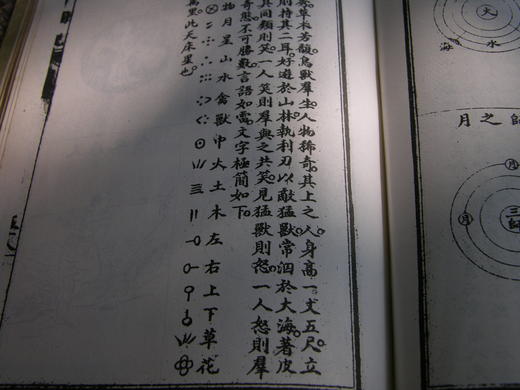 草木芳馥。鳥獸羣生。人物稀奇。其上之人。身高一丈五尺。立
則持其二耳。好遊於山林。執利刃以敵猛獸。常泅於大海。著皮
其同類則笑。一人笑則羣與之共笑。見猛獸則怒。一人怒則羣
奇態不可勝數。言語如雷。文字極簡如下。
物月星山水禽獸巾火土木左右上下草花
萬里此天床星也。
火
水
海
師之月
月
月